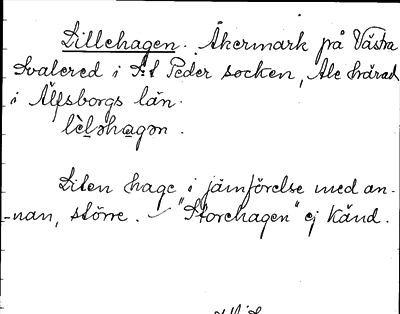 Lillehagen. Åkermark på Västra
Svalered i S:t Peder socken, Ale härad
i Älfsborgs län.
lèləhagən.
Liten hage i jämförelse med an-
nan, större. – "Storehagen" ej känd.